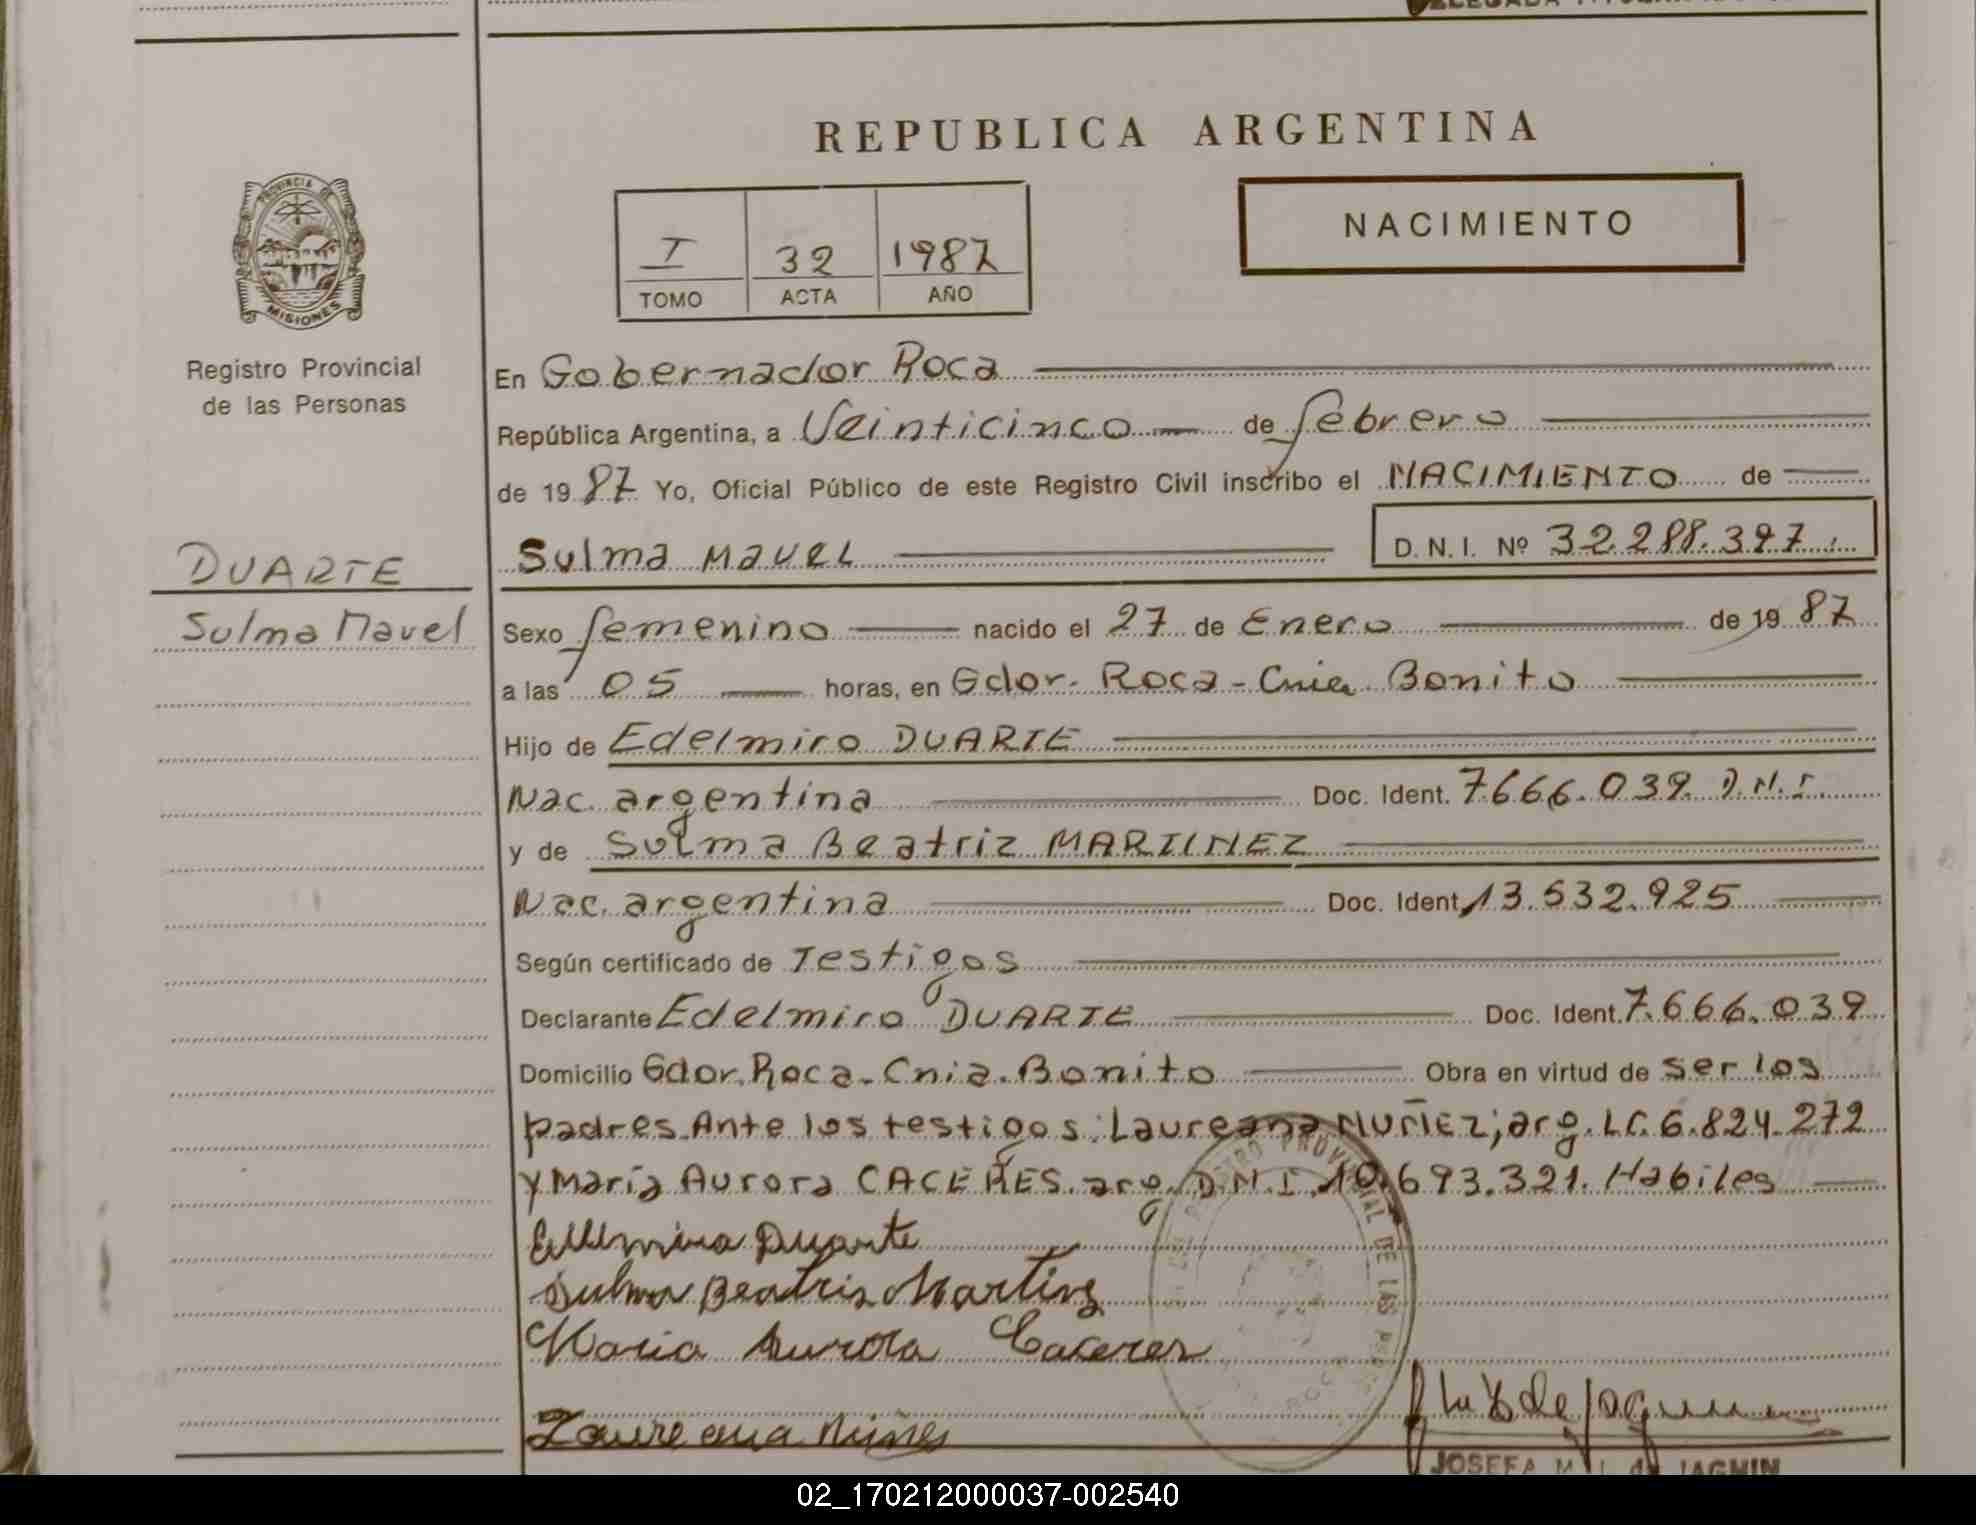 REPUBLICA ARGENTINA
PROVINCIA DE
MISIONES
Registro Provincial
de las Personas
I 32 1987
TOMO ACTA AÑO
NACIMIENTO
En Gobernador Roca
República Argentina, a Veinticinco de febrero
de 19 87 Yo, Oficial Público de este Registro Civil inscribo el NACIMIENTO de
Sulma Mavel D. N. I. Nº 32.288.397
DUARTE
Sulma Mavel
Sexo femenino nacido el 27 de Enero de 19 87
a las 05 horas, en Gdor. Roca - Cnia. Bonito
Hijo de Edelmiro DUARTE
Nac. argentina Doc. Ident. 7.666.039 D.N.I.
y de Sulma Beatriz MARTINEZ
Nac. argentina Doc. Ident. 13.532.925
Según certificado de Testigos
Declarante Edelmiro DUARTE Doc. Ident. 7.666.039
Domicilio Gdor. Roca - Cnia. Bonito Obra en virtud de ser los
padres. Ante los testigos: Laureana NUÑEZ; arg. LC. 6.824.272
y María Aurora CACERES. arg. D.N.I. 10.693.321. Habiles
Edelmiro Duarte
Sulma Beatris Martines
Maria Aurora Caceres
Laureana Nuñes
REGISTRO PROVINCIAL DE LAS
ROCA
JOSEFA
02_170212000037-002540